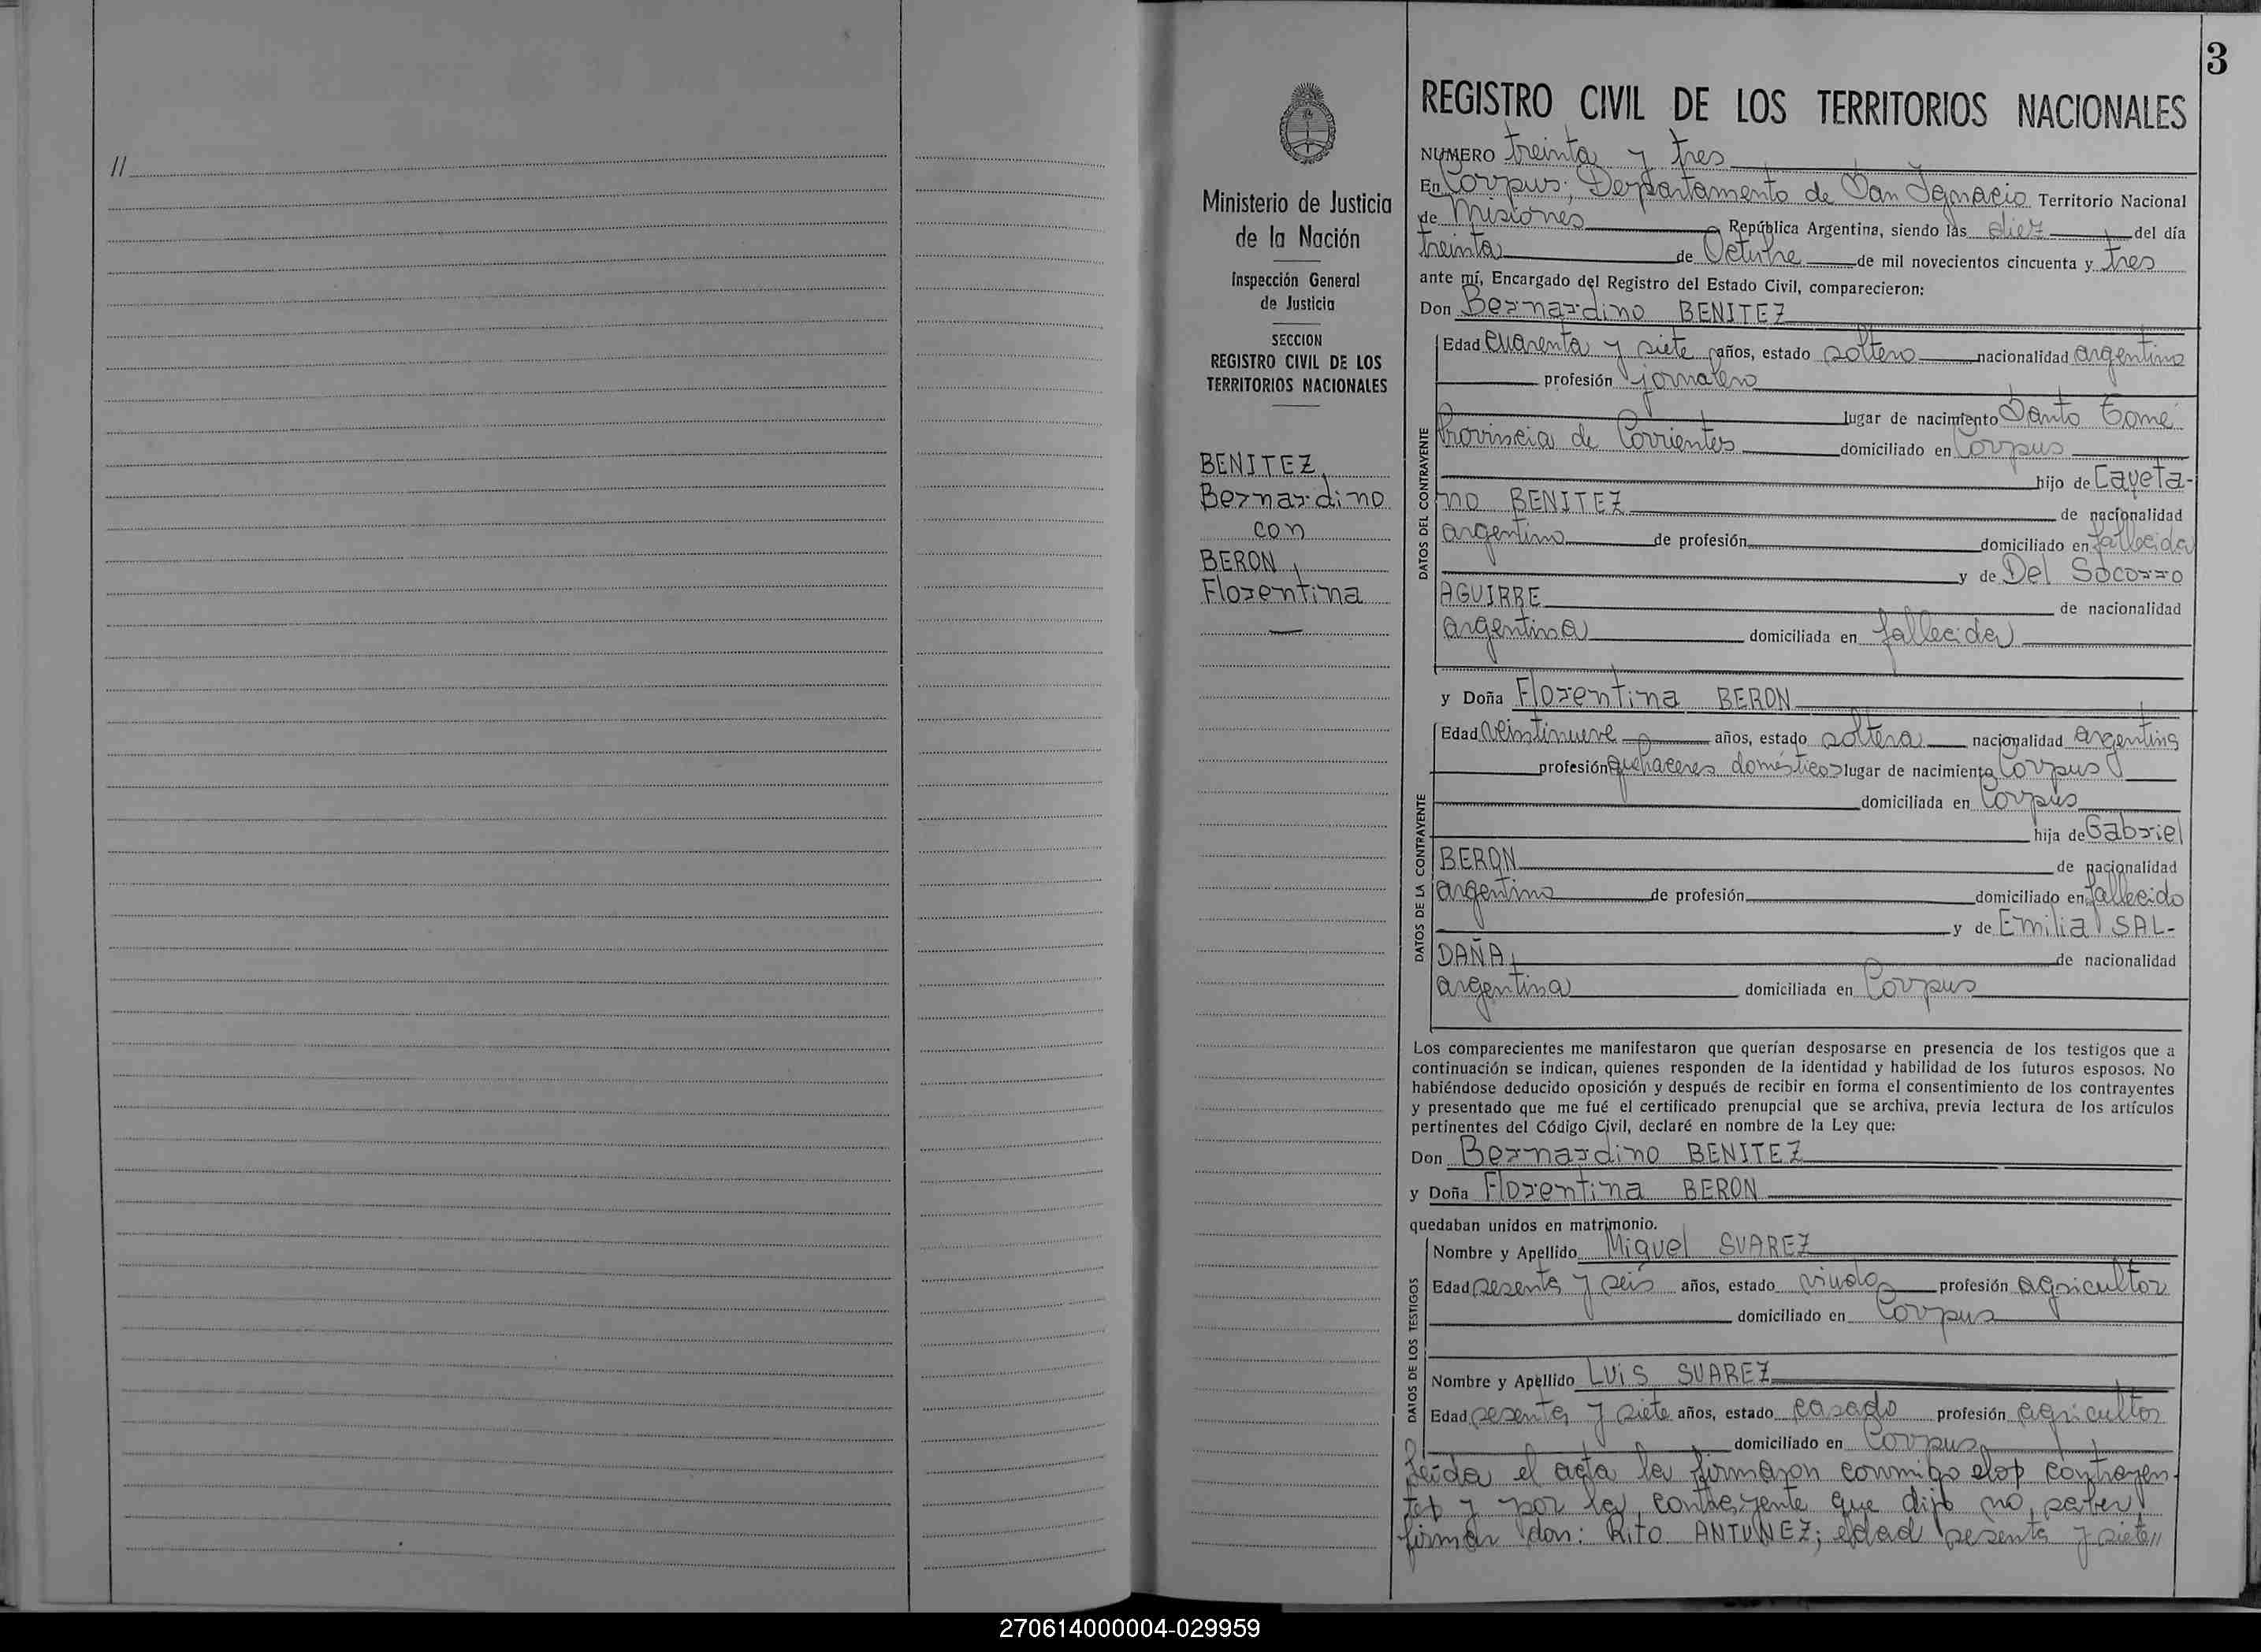 //
3
Ministerio de Justicia
de la Nación
Inspección General
de Justicia
SECCION
REGISTRO CIVIL DE LOS
TERRITORIOS NACIONALES
BENITEZ,
Bernardino
con
BERON,
Florentina
REGISTRO CIVIL DE LOS TERRITORIOS NACIONALES
NUMERO treinta y tres
En Corpus, Departamento de San Ignacio Territorio Nacional
de Misiones República Argentina, siendo las diez del día
treinta de Octubre de mil novecientos cincuenta y tres
ante mí, Encargado del Registro del Estado Civil, comparecieron:
Don Bernardino BENITEZ
Edad cuarenta y siete años, estado soltero nacionalidad argentino
profesión jornalero
lugar de nacimiento Santo Tomé
Provincia de Corrientes domiciliado en Corpus
hijo de Cayeta-
DATOS DEL CONTRAYENTE
no BENITEZ de nacionalidad
argentino de profesión domiciliado en fallecido
y de Del Socorro
AGUIRRE de nacionalidad
argentina domiciliada en fallecida
y Doña Florentina BERON
Edad veintinueve años, estado soltera nacionalidad argentina
profesión quehaceres domésticos lugar de nacimiento Corpus
domiciliada en Corpus
hija de Gabriel
DATOS DE LA CONTRAYENTE
BERON de nacionalidad
argentino de profesión domiciliado en fallecido
y de Emilia SAL-
DAÑA, de nacionalidad
argentina domiciliada en Corpus
Los comparecientes me manifestaron que querían desposarse en presencia de los testigos que a
continuación se indican, quienes responden de la identidad y habilidad de los futuros esposos. No
habiéndose deducido oposición y después de recibir en forma el consentimiento de los contrayentes
y presentado que me fué el certificado prenupcial que se archiva, previa lectura de los artículos
pertinentes del Código Civil, declaré en nombre de la Ley que:
Don Bernardino BENITEZ
y Doña Florentina BERON
quedaban unidos en matrimonio.
Nombre y Apellido Miguel SUAREZ
Edad sesenta y seis años, estado viudo profesión agricultor
domiciliado en Corpus
DATOS DE LOS TESTIGOS
Nombre y Apellido Luis SUAREZ
Edad sesenta y siete años, estado casado profesión agricultor
domiciliado en Corpus
Leída el acta la firmaron conmigo contrayen-
tes y por la contrayente que dijo no saber
firmar don: Rito ANTUNEZ; edad sesenta y siete//
270614000004-029959